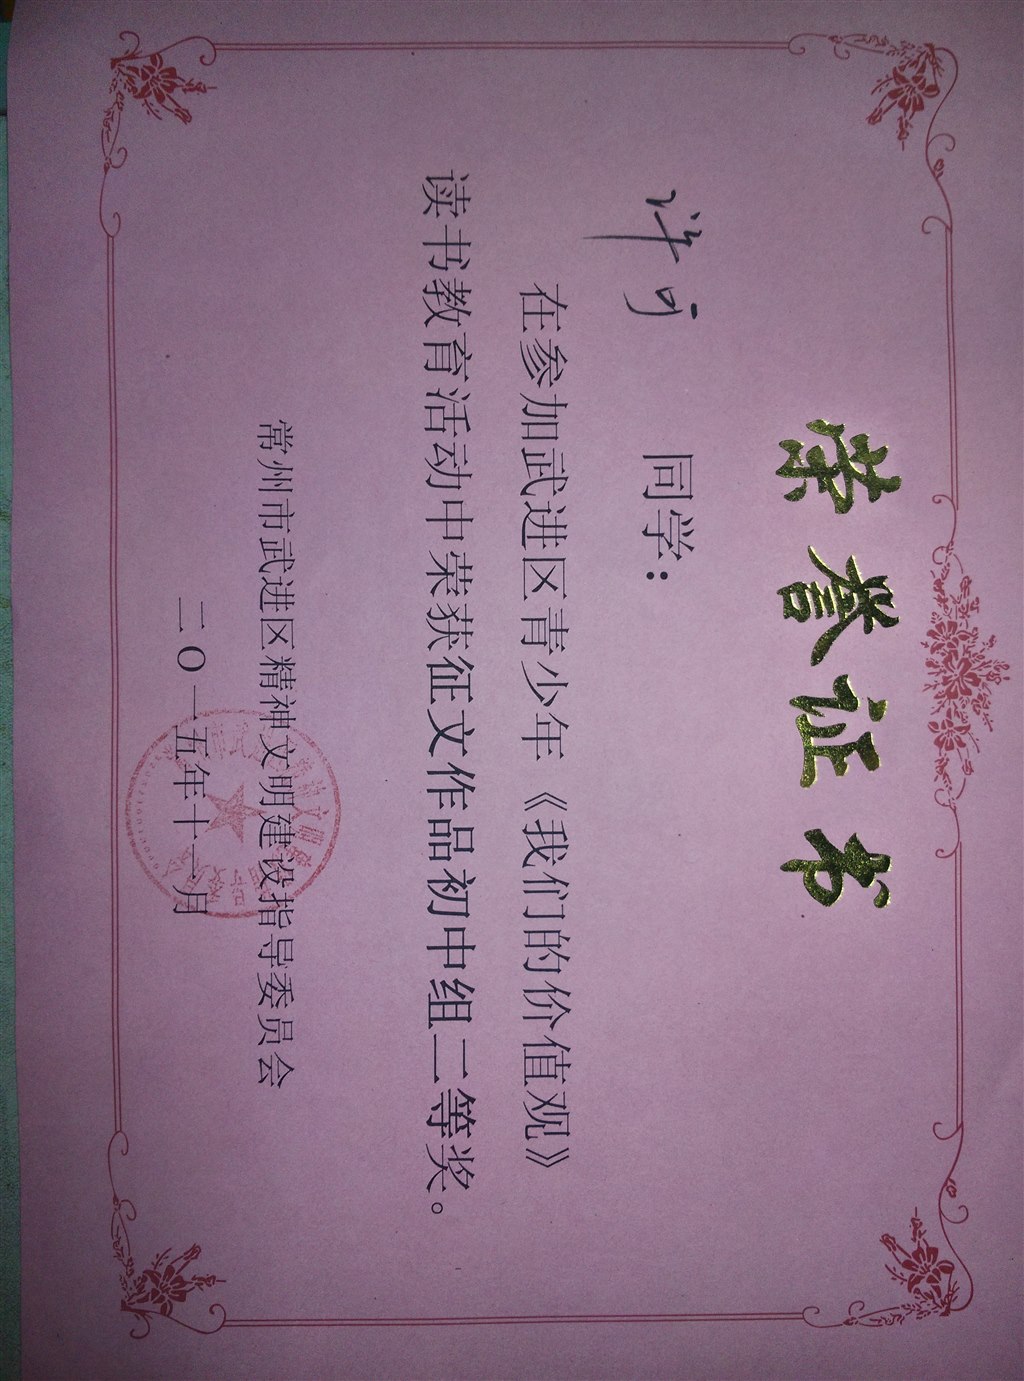 荣誉证书
许可 同学：
在参加武进区青少年《我们的价值观》
读书教育活动中荣获征文作品初中组二等奖。
常州市武进区精神文明建设指导委员会
二O一五年十一月